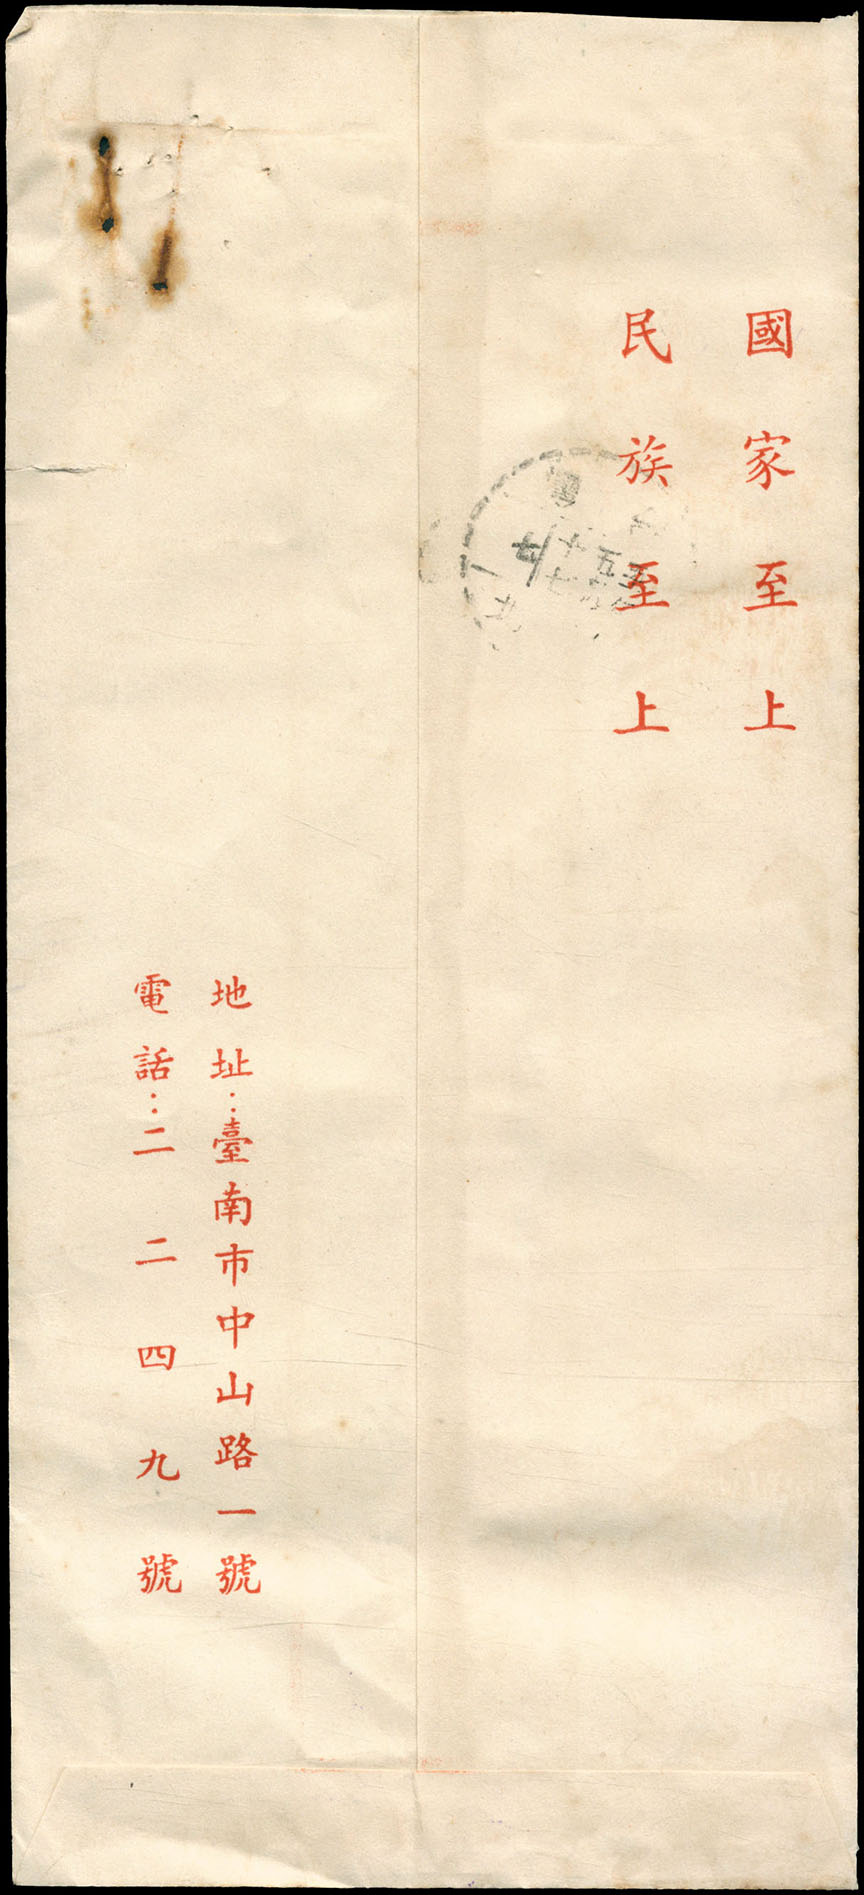 國家至上
民族至上
地址：臺南市中山路一號
電話：二二四九號